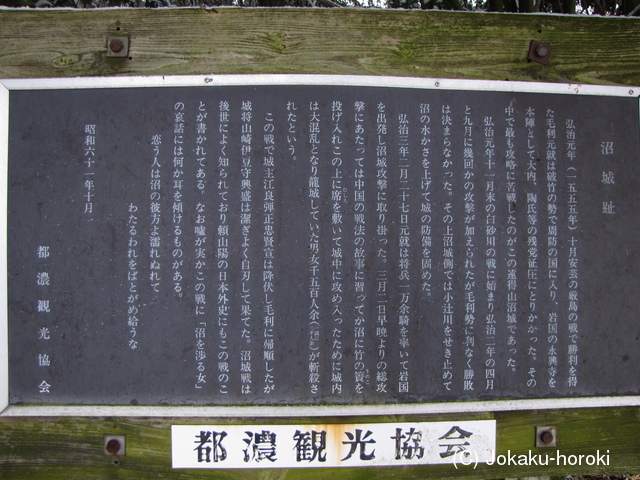 沼城趾
弘治元年(一五五五年)十月安芸の厳島の戦で勝利を得
た毛利元就は破竹の勢で周防の国に入り、岩国の永興寺を
本陣として大内、陶氏等の残党征圧にとりかかった。その
中で最も攻略に苦戦したのがこの蓮得山沼城であった。
弘治元年十一月末の白砂川の戦に始まり弘治二年の四月
と九月に幾回かの攻撃が加えられたが毛利勢に利なく勝敗
は決まらなかった。その上沼城側では小辻川をせき止めて
沼の水かさを上げて城の防備を固めた。
弘治三年二月二十七日元就は将兵一万余騎を率いて岩国
を出発し沼城攻撃に取り掛った。三月二日早暁よりの総攻
撃にあたっては中国の戦法の故事に習ってか沼に竹の簀を
投げ入れこの上に席を敷いて城中に攻め入ったために城内
は大混乱となり籠城していた男女千五百人余が斬殺さ
れたという。
この戦で城主江良弾正忠賢宣は降伏し毛利に帰順したが
城将山崎伊豆守興盛は潔ぎよく自刃して果てた。沼城戦は
後世によく知られており頼山陽の日本外史にもこの戦のこ
とが書かれてある。なお嘘が実かこの戦に「沼を渉る女」
の哀話には何か耳を傾けるものがある。
恋う人は沼の彼方よ濡れぬれて
わたるわれをばとがめ給うな
昭和六十一年十月
都濃観光協会
都濃観光協会
(C) Jokaku-horoki